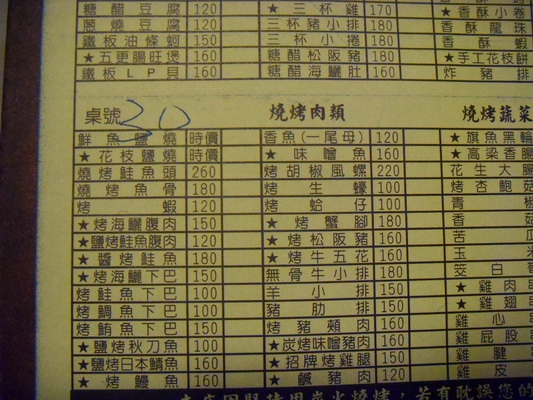 糖醋豆腐 120 ★三杯雞 170
蔥燒豆腐 120 三杯豬小排 180 ★香酥小卷
鐵板油條蚵 150 三杯小捲 180 香酥龍珠
★五更腸旺煲 160 糖醋松阪豬 180 香酥蝦
鐵板LP貝 160 糖醋海鱺肚 160 ★手工花枝餅
炸豬排
桌號 20 燒烤肉類 燒烤蔬菜
鮮魚鹽燒 時價 香魚(一尾母) 120 ★旗魚黑輪
★花枝鹽燒 時價 ★味噌魚 160 ★高梁香腸
燒烤鮭魚頭 260 烤胡椒風螺 220 花生大腸
燒烤魚骨 180 烤生蠔 100 烤杏鮑菇
烤蝦 120 烤蛤仔 100 青椒
★烤海鱺腹肉 150 ★烤蟹腳 180 香菇
★鹽烤鮭魚腹肉 120 ★烤松阪豬 160 苦瓜
★醬烤鮭魚 180 ★烤牛五花 160 玉米
★烤海鱺下巴 150 無骨牛小排 180 筊白
烤鮭魚下巴 100 羊小排 150 ★雞肉串
烤鯛魚下巴 100 豬肋排 150 ★雞翅
烤鮪魚下巴 150 烤豬頰肉 160 雞心
★鹽烤秋刀魚 100 ★炭烤味噌豬肉 160 雞屁股
★鹽烤日本鯖魚 160 ★招牌烤雞腿 150 雞腱
★烤鰻魚 160 ★鹹豬肉 120 雞皮